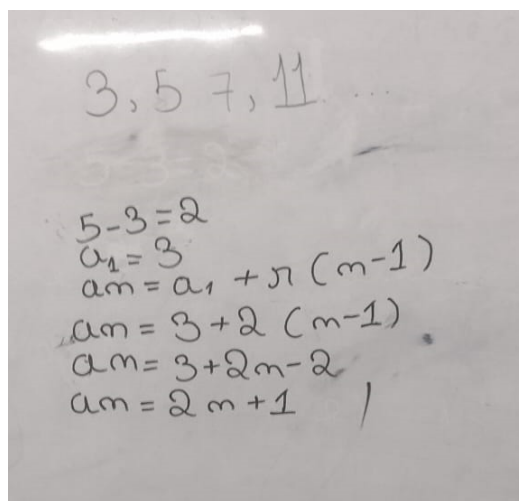 3, 5 7, 11....
5-3=2
a₁=3
an=a₁+r(n-1)
an=3+2(n-1)
an=3+2n-2
an=2n+1